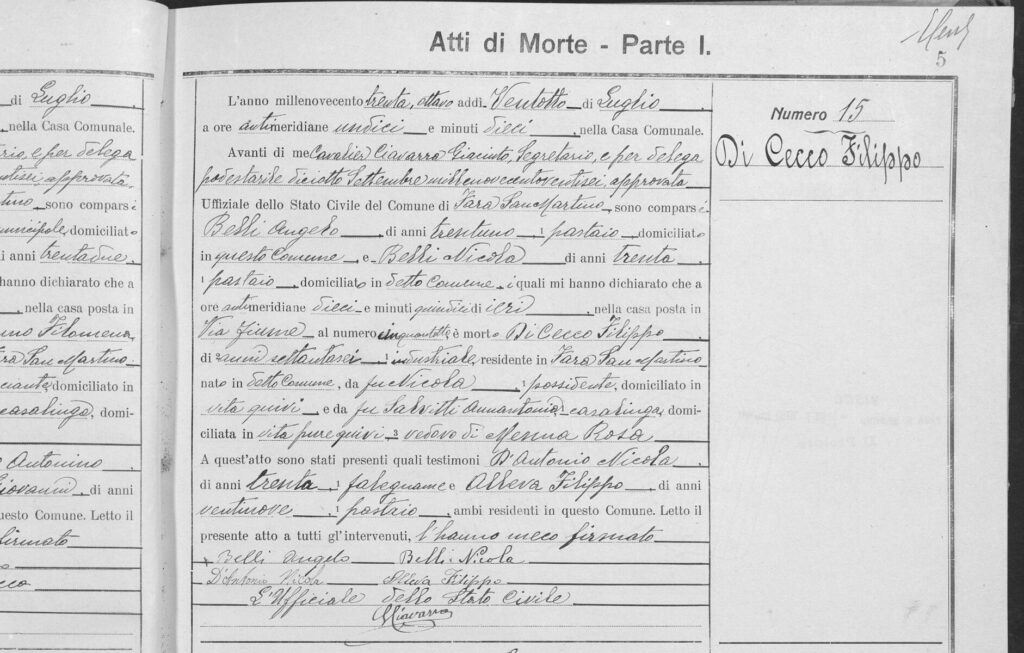 di Luglio
, nella Casa Comunale.
e per delega
approvata
sono compars
domiciliato
di anni trentadue
hanno dichiarato che a
, nella casa posta in
Filomena
San Martino
domiciliato in
casalinga, domi-
Antonino
Giovanni, di anni
questo Comune. Letto il
firmato
Atti di Morte - Parte I.
5
L'anno millenovecento trenta, ottavo addì Ventotto di Luglio
a ore antimeridiane undici e minuti dieci, nella Casa Comunale.
Avanti di me Cavalier Ciavarra Giacinto, Segretario, e per delega
podestarile diciotto Settembre millenovecentoventisei, approvata
Uffiziale dello Stato Civile del Comune di Fara San Martino, sono comparsi
Belli Angelo, di anni trentuno, pastaio domiciliato
in questo Comune e Belli Nicola di anni trenta
pastaio, domiciliato in detto Comune, i quali mi hanno dichiarato che a
ore antimeridiane dieci e minuti quindici di ieri, nella casa posta in
Via Fiume al numero cinquantotto è morto Di Cecco Filippo
di anni settantasei industriale, residente in Fara San Martino
nato in detto Comune, da fu Nicola, possidente, domiciliato in
vita quivi e da fu Salvitti Annantonia casalinga, domi-
ciliata in vita pure quivi 3 vedovo di Menna Rosa
A quest'atto sono stati presenti quali testimoni D'Antonio Nicola
di anni trenta, falegname e Alleva Filippo, di anni
ventinove, pastaio, ambi residenti in questo Comune. Letto il
presente atto a tutti gl'intervenuti, l'hanno meco firmato
Belli Angelo Belli Nicola
D'Antonio Nicola Alleva Filippo
L'Ufficiale dello Stato Civile
GCiavarra
Numero 15
Di Cecco Filippo